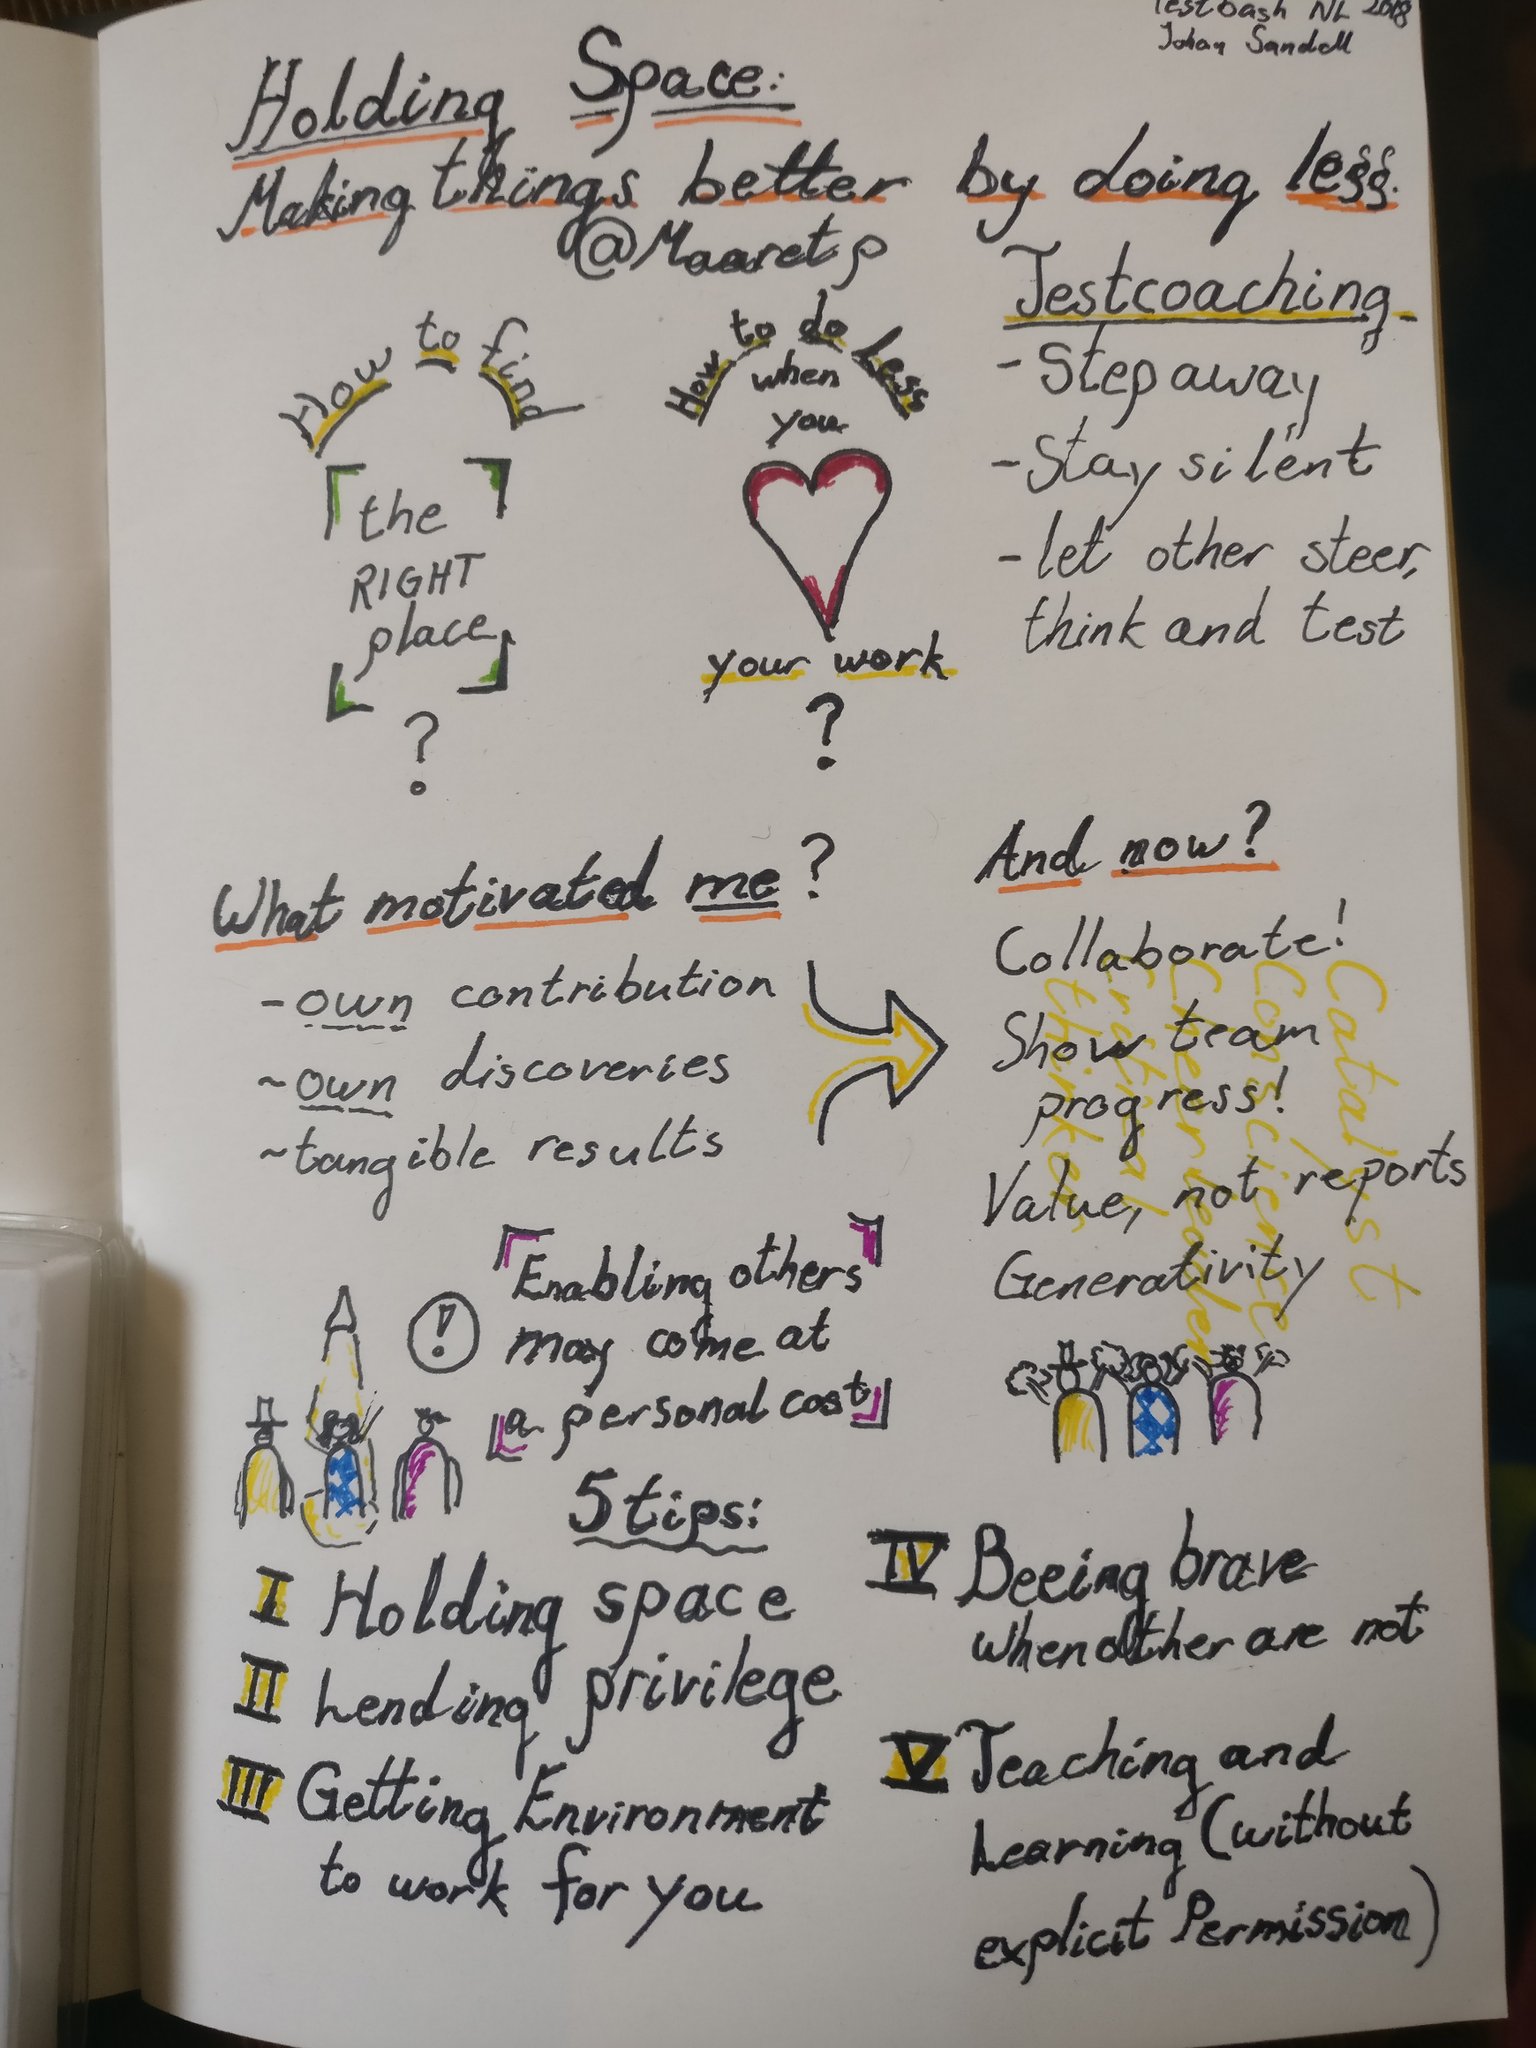 TestBash NL 2018
Johan Sandell
Holding Space:
Making things better by doing less.
@Maaretp
How to find
the
RIGHT
place
?
How to do Less
when
you
your work
?
Testcoaching
- Step away
- Stay silent
- let other steer,
think and test
What motivated me?
- own contribution
~ own discoveries
~ tangible results
And now?
Collaborate!
Show team
progress!
Value, not reports
Generativity
Catalyst
Conscience
Cheerleader
Critical
thinker
!
Enabling others
may come at
a personal cost
5 tips:
I Holding space
II Lending privilege
III Getting Environment
to work for you
IV Beeing brave
when other are not
V Teaching and
Learning (without
explicit Permission)